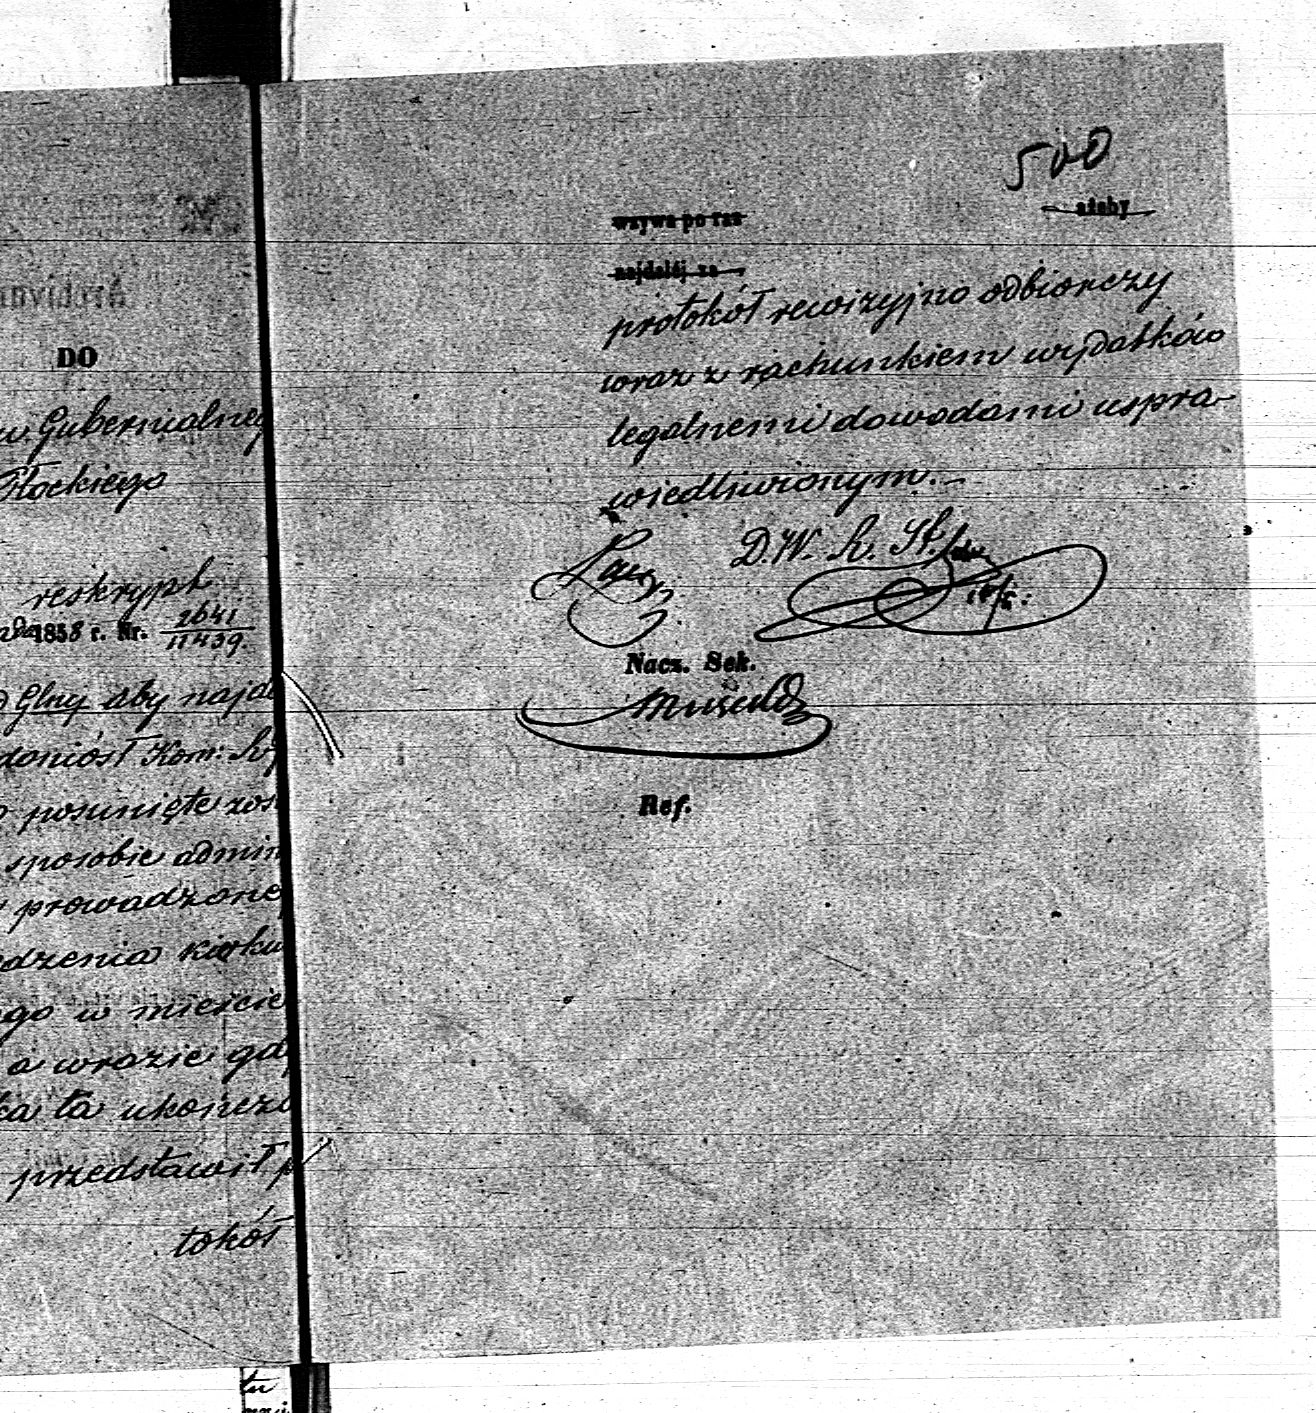 DO
Gubernialneg
Płockiego
reskrypt
1858 r. Nr. 2641
11439.
Glny aby najda
doniósł Kom: Rz
posunięte zos
sposobie admin
prowadzonej
dzenia kirku
ego w mieście
a wrazie gdy
ka ta ukończo
przedstawił p
tokół
500
wzywa po raz ażeby
najdalej za
protokół rewizyjno odbiorczy
wraz z rachunkiem wydatków
legalnemi dowodami uspra-
wiedliwionym.
D. W. R. St.
Nacz. Sek.
Ref.
tu